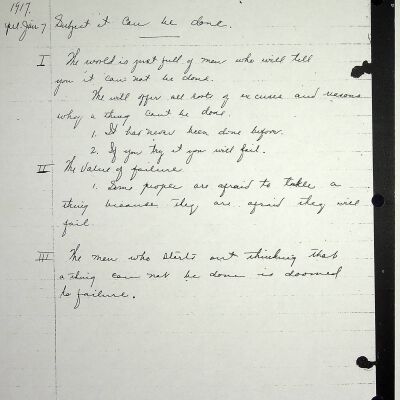 1917.
Jan 7 Subject it can be done.
I The world is just full of men who will tell
you it can not be done.
The will offer all sorts of excuses and reasons
why a thing cant be done.
1. It has never been done before.
2. If you try it you will fail.
II The Value of failure
1. Some people are afraid to tackle a
thing because they are afraid they will
fail
III The man who starts out thinking that
a thing can not be done is doomed
to failure.